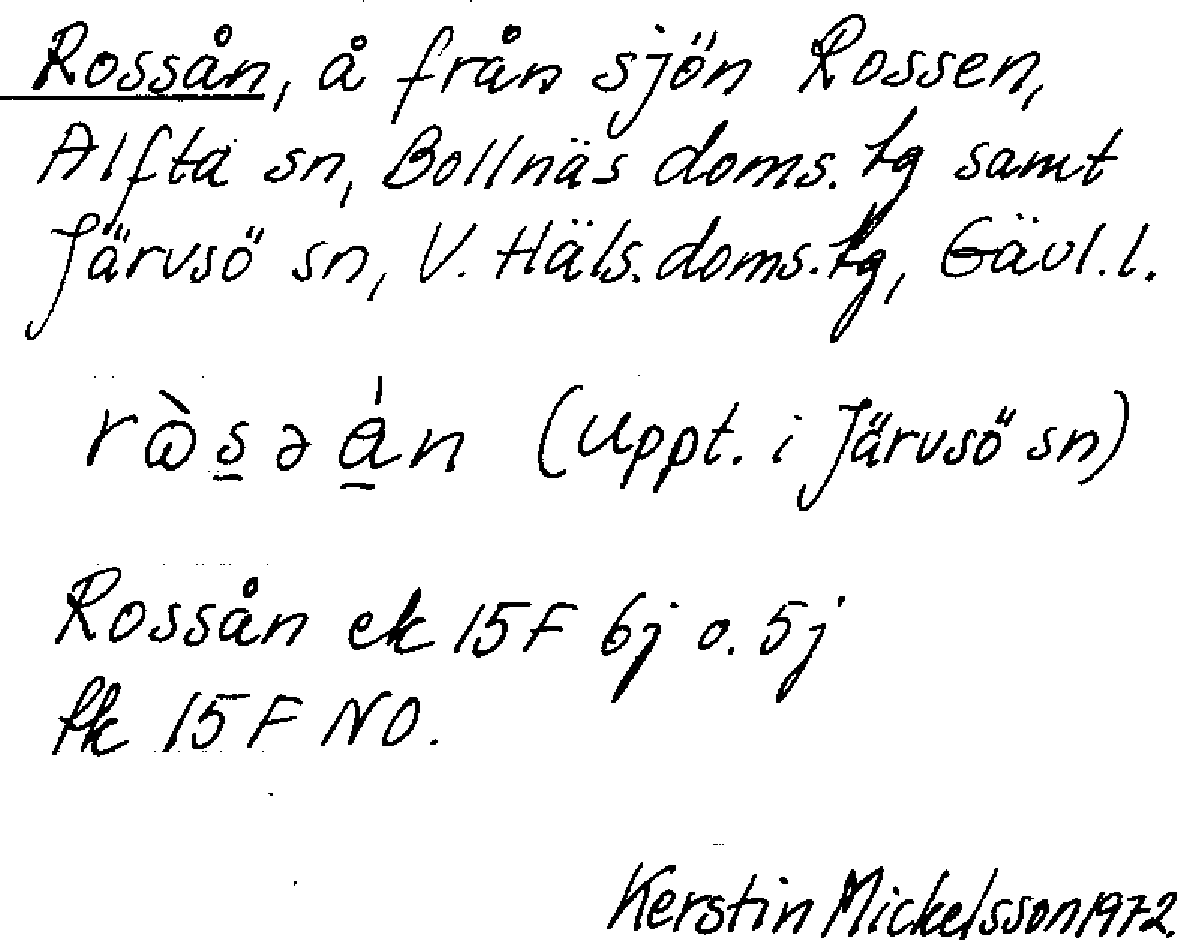 Rossån, å från sjön Rossen,
Alfta sn, Bollnäs doms. tg samt
Järvsö sn, V. Häls. doms. tg, Gävl. l.
rɷ̀s̲əá̲n (Uppt. i Järvsö sn)
Rossån ek 15F 6j o. 5j
tk 15F NO.
Kerstin Mickelsson 1972.